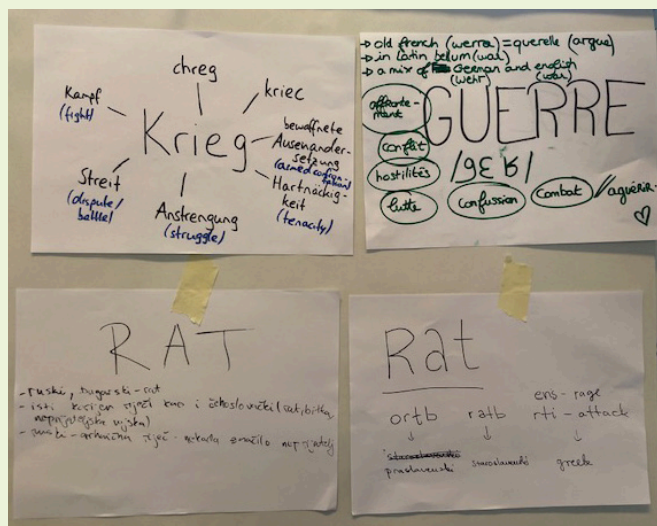 chreg
kriec
Kampf
(fight)
Krieg
bewaffnete
Ausenander-
setzung
(armed confron-
tation)
Hartnäckig-
keit
(tenacity)
Streit
(dispute/
battle)
Anstrengung
(struggle)
→ old french (werra) = querelle (argue)
→ in latin bellum (war)
→ a mix of German and english
(wehr) (war)
GUERRE
affronte-
ment
conflit
hostilités
lutte
/gɛʀ/
confussion
combat
// aguérir
RAT
- ruski, bugarski - rat
- isti korijen riječi kao i čehoslovački (rat, bitka,
neprijateljska vojska)
- ruski - arhaična riječ - nekada značilo neprijatelj
Rat
ens - rage
ortb ratb rti - attack
↓ ↓ ↓
praslavenski staroslavenski greek